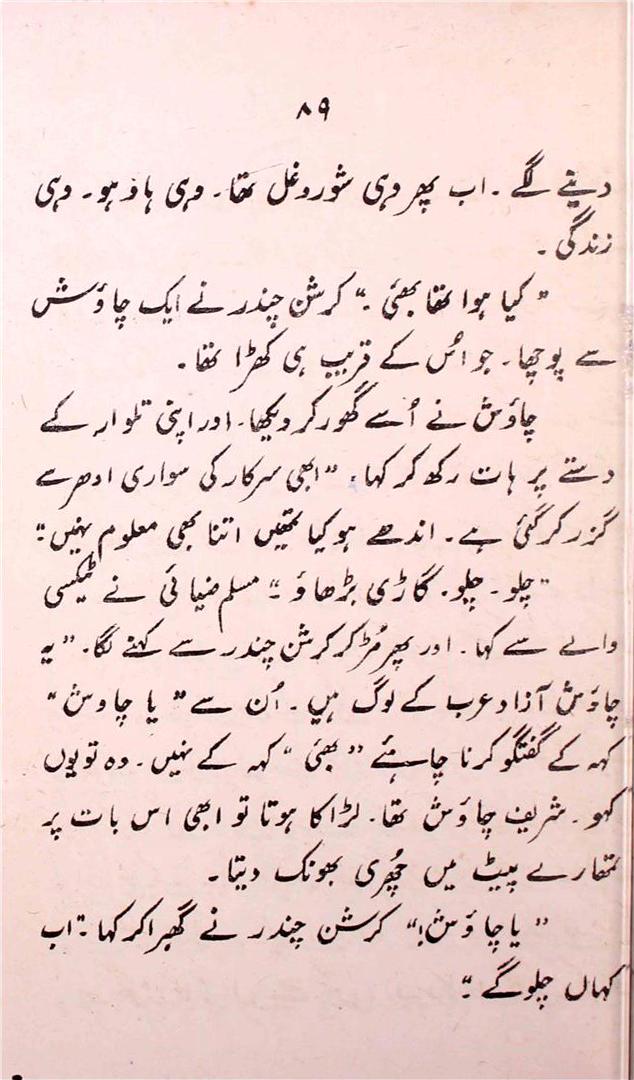 ۸۹
دینے لگے ۔ اب پھر وہی شوروغل تھا۔ وہی ہاؤ ہو۔ وہی
زندگی ۔
"کیا ہوا تھا بھئی ۔" کرشن چندر نے ایک چاؤش
سے پوچھا۔ جو اُس کے قریب ہی کھڑا تھا۔
چاؤش نے اُسے گھور کر دیکھا۔ اور اپنی تلوار کے
دستے پر ہات رکھ کر کہا۔ "ابھی سرکار کی سواری ادھر سے
گزر کر گئی ہے۔ اندھے ہو کیا تمھیں اتنا بھی معلوم نہیں"
"چلو۔ چلو۔ گاڑی بڑھاؤ۔" مسلم ضیائی نے ٹیکسی
والے سے کہا۔ اور پھر مُڑ کر کرشن چندر سے کہنے لگا۔ "یہ
چاؤش آزاد عرب کے لوگ ہیں۔ اُن سے "یا چاوش"
کہہ کے گفتگو کرنا چاہئے "بھئی" کہہ کے نہیں۔ وہ تو یوں
کہو۔ شریف چاؤش تھا۔ لڑاکا ہوتا تو ابھی اس بات پر
تمھارے پیٹ میں چھُری بھونک دیتا۔
"یا چاؤش!" کرشن چندر نے گھبرا کر کہا۔ "اب
کہاں چلو گے۔"